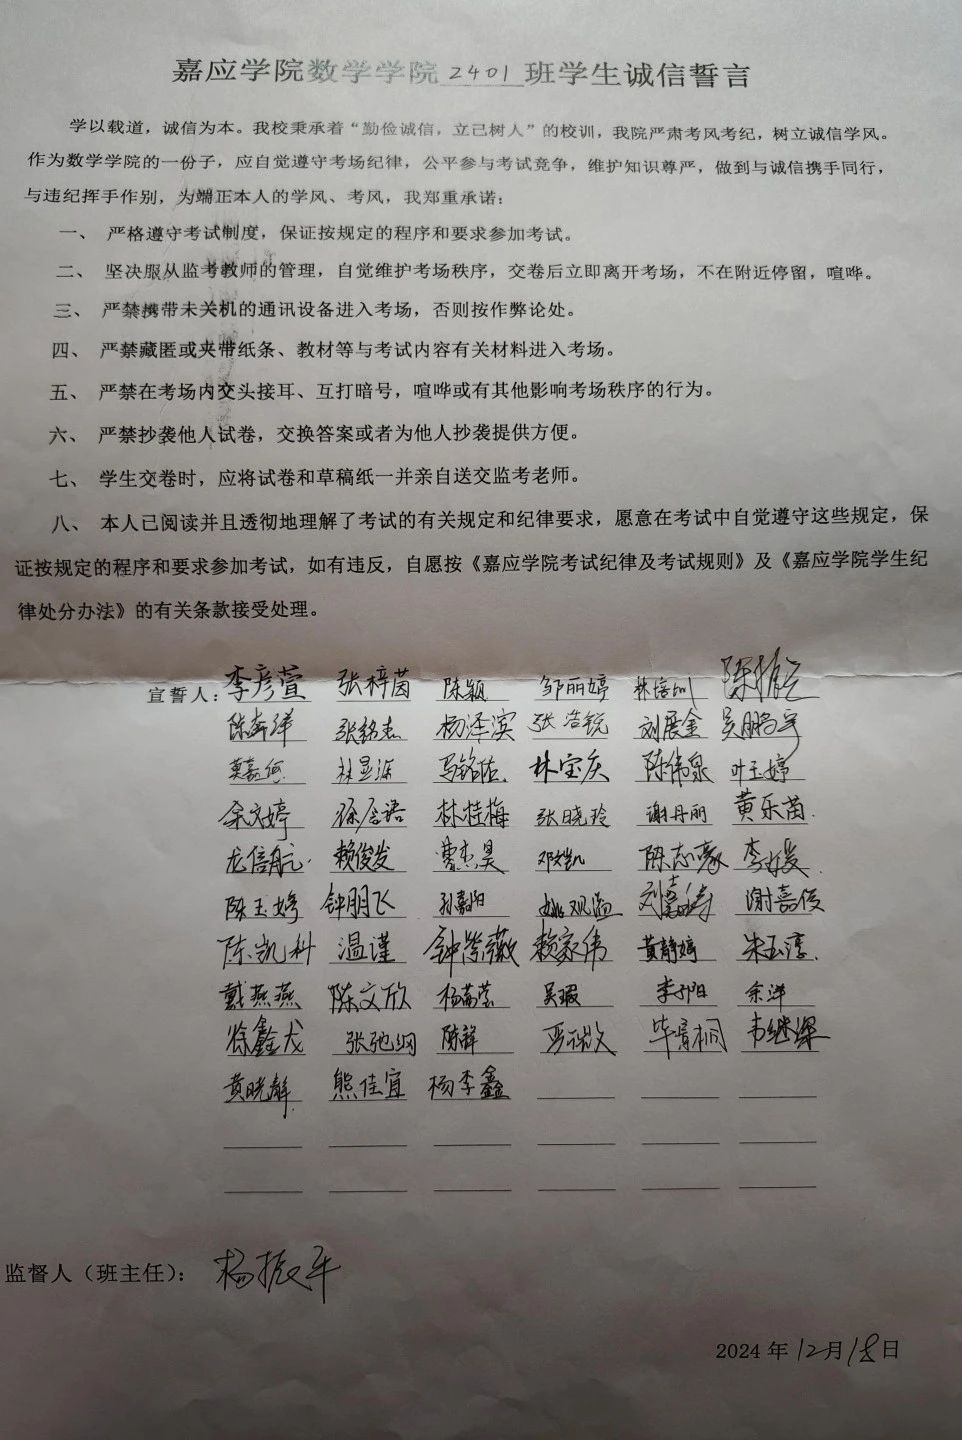 嘉应学院数学学院2401班学生诚信誓言
学以载道，诚信为本。我校秉承着“勤俭诚信，立己树人”的校训，我院严肃考风考纪，树立诚信学风。
作为数学学院的一份子，应自觉遵守考场纪律，公平参与考试竞争，维护知识尊严，做到与诚信携手同行，
与违纪挥手作别，为端正本人的学风、考风，我郑重承诺：
一、 严格遵守考试制度，保证按规定的程序和要求参加考试。
二、 坚决服从监考教师的管理，自觉维护考场秩序，交卷后立即离开考场，不在附近停留，喧哗。
三、 严禁携带未关机的通讯设备进入考场，否则按作弊论处。
四、 严禁藏匿或夹带纸条、教材等与考试内容有关材料进入考场。
五、 严禁在考场内交头接耳、互打暗号，喧哗或有其他影响考场秩序的行为。
六、 严禁抄袭他人试卷，交换答案或者为他人抄袭提供方便。
七、 学生交卷时，应将试卷和草稿纸一并亲自送交监考老师。
八、 本人已阅读并且透彻地理解了考试的有关规定和纪律要求，愿意在考试中自觉遵守这些规定，保
证按规定的程序和要求参加考试，如有违反，自愿按《嘉应学院考试纪律及考试规则》及《嘉应学院学生纪
律处分办法》的有关条款接受处理。
宣誓人：李彦萱 张梓茵 陈颖 邹丽婷
杨泽滨 张浩锐 刘展金 吴鹏宇
林宝庆 陈伟泉 叶玉婷
余文婷 林桂梅 张晓玲 谢丹丽 黄乐茵
龙信航 赖俊发 曹杰昊 邓文凯 陈志豪
陈玉婷 钟朋飞 孙嘉阳 刘嘉涛 谢嘉俊
陈凯科 温谨 钟紫薇 赖家伟 黄静婷 朱玉淳
戴燕燕 陈文欣 吴瑕 余洋
徐鑫龙 张弛纲
黄晓静 熊佳宜 杨李鑫
监督人（班主任）：杨振军
2024年12月18日